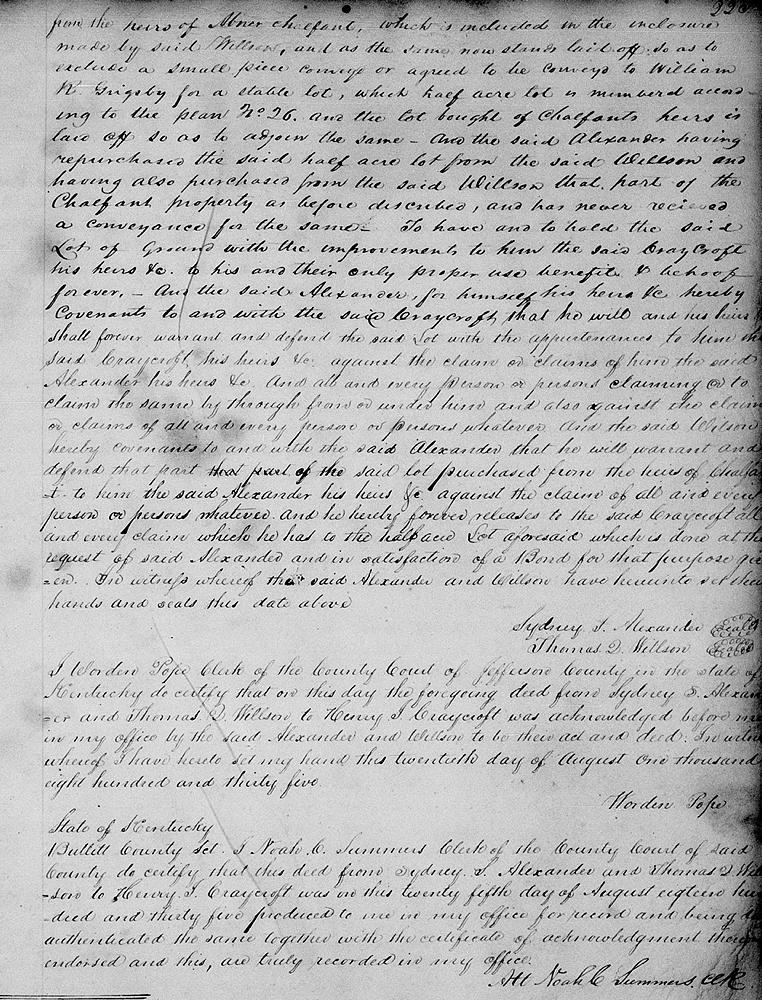 from the heirs of Abner Chalfant, which is included in the inclosure
made by said Willson, and as the same now stands laid off so as to
exclude a small piece conveyd or agreed to be conveyd to William
R. Grigsby for a stable lot, which half acre lot is numberd accord-
ing to the plan No. 26. and the lot bought of Chalfants heirs is
laid off so as to adjoin the same - And the said Alexander having
repurchased the said half acre lot from the said Willson and
having also purchased from the said Willson that part of the
Chalfant property as before discribed, and has never recieved
a conveyance for the same - To have and to hold the said
Lot of Ground with the improvements to him the said Craycroft
his heirs &c. to his and their only proper use benefit & behoof
forever. - And the said Alexander, for himself his heirs &c hereby
Covenants to and with the said Craycroft, that he will and his heirs
shall forever warrant and defend the said Lot with the appurtenances to him the
said Craycroft, his heirs &c. against the claim or claims of him the said
Alexander his heirs &c. And all and every person or persons claiming or to
claim the same by through from or under him and also against the claim
or claims of all and every person or persons whatever And the said Wilson
hereby covenants to and with the said Alexander that he will warrant and
defend that part that part of the said lot purchased from the heirs of Chalfa
-t. to him the said Alexander his heirs &c against the claim of all and every
person or persons whatever. and he hereby forever releases to the said Craycroft all
and every claim which he has to the half acre Lot aforesaid which is done at the
request of said Alexander and in satisfaction of a Bond for that purpose giv
-en. In witness whereof the said Alexander and Willson have hereunto set their
hands and seals this date above
Sydney S. Alexander Seal
Thomas Q. Willson Seal
I Worden Pope Clerk of the County Court of Jefferson County in the state of
Kentucky do certify that on this day the foregoing deed from Sydney S. Alexan
-er and Thomas Q. Willson to Henry I. Craycroft was acknowledged before me
in my office by the said Alexander and Willson to be their act and deed. In witn
whereof I have hereto set my hand this twentieth day of August One thousand
eight hundred and thirty five.
Worden Pope
State of Kentucky
Bullitt County Sct. I Noah C. Summers Clerk of the County Court of said
County do certify that this deed from Sydney. S. Alexander and Thomas Q Wil
-son to Henry. I. Craycroft was on this twenty fifth day of August eigteen hun
-dred and thirty five produced to me in my office for record and being
authenticated the same together with the certificate of acknowledgment thereon
endorsed and this, are truly recorded in my office.
Att Noah C Summers. CCK